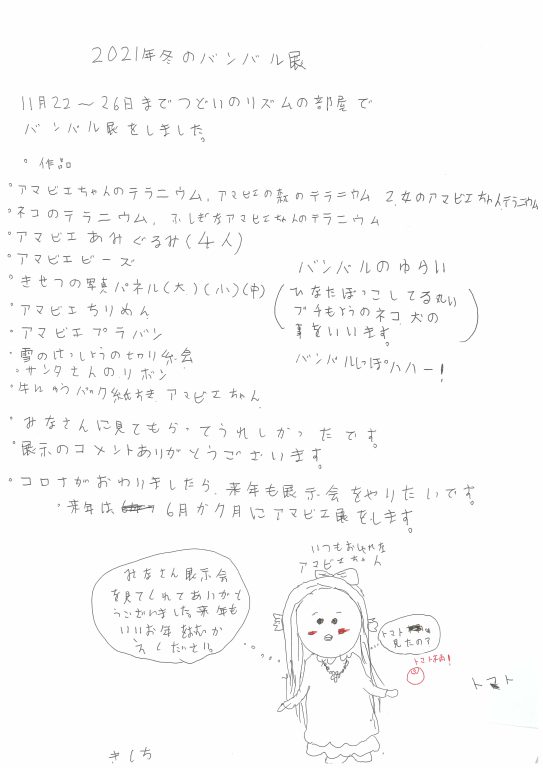 2021年冬のバンバル展
11月22～26日までつどいのリズムの部屋で
バンバル展をしました。
。作品
。アマビエちゃんのテラニウム、アマビエの森のテラニウム 乙女のアマビエちゃんテラニウム
。ネコのテラニウム、ふしぎなアマビエちゃんのテラニウム
。アマビエあみぐるみ(4人)
。アマビエビーズ
。きせつの写真パネル(大)(小)(中)
。アマビエちりめん
。アマビエプラバン
・雪のけっしょうの切り絵
。サンタさんのリボン
・牛にゅうパック紙すき アマビエちゃん
バンバルのゆらい
(ひなたぼっこしてる丸い
ブチもようのネコ、犬の
事をいいます。)
バンバルしっぽハハー!
。みなさんに見てもらってうれしかったです。
。展示のコメントありがとうございます。
。コロナがおわりましたら、来年も展示会をやりたいです。
。来年は 6月か7月にアマビエ展をします。
いつもおしゃれな
アマビエちゃん
みなさん展示会
を見てくれてありがと
うございました。来年も
いいお年をおむか
えください。
トマト
見たの?
トマトまあ!
トマト
きしち